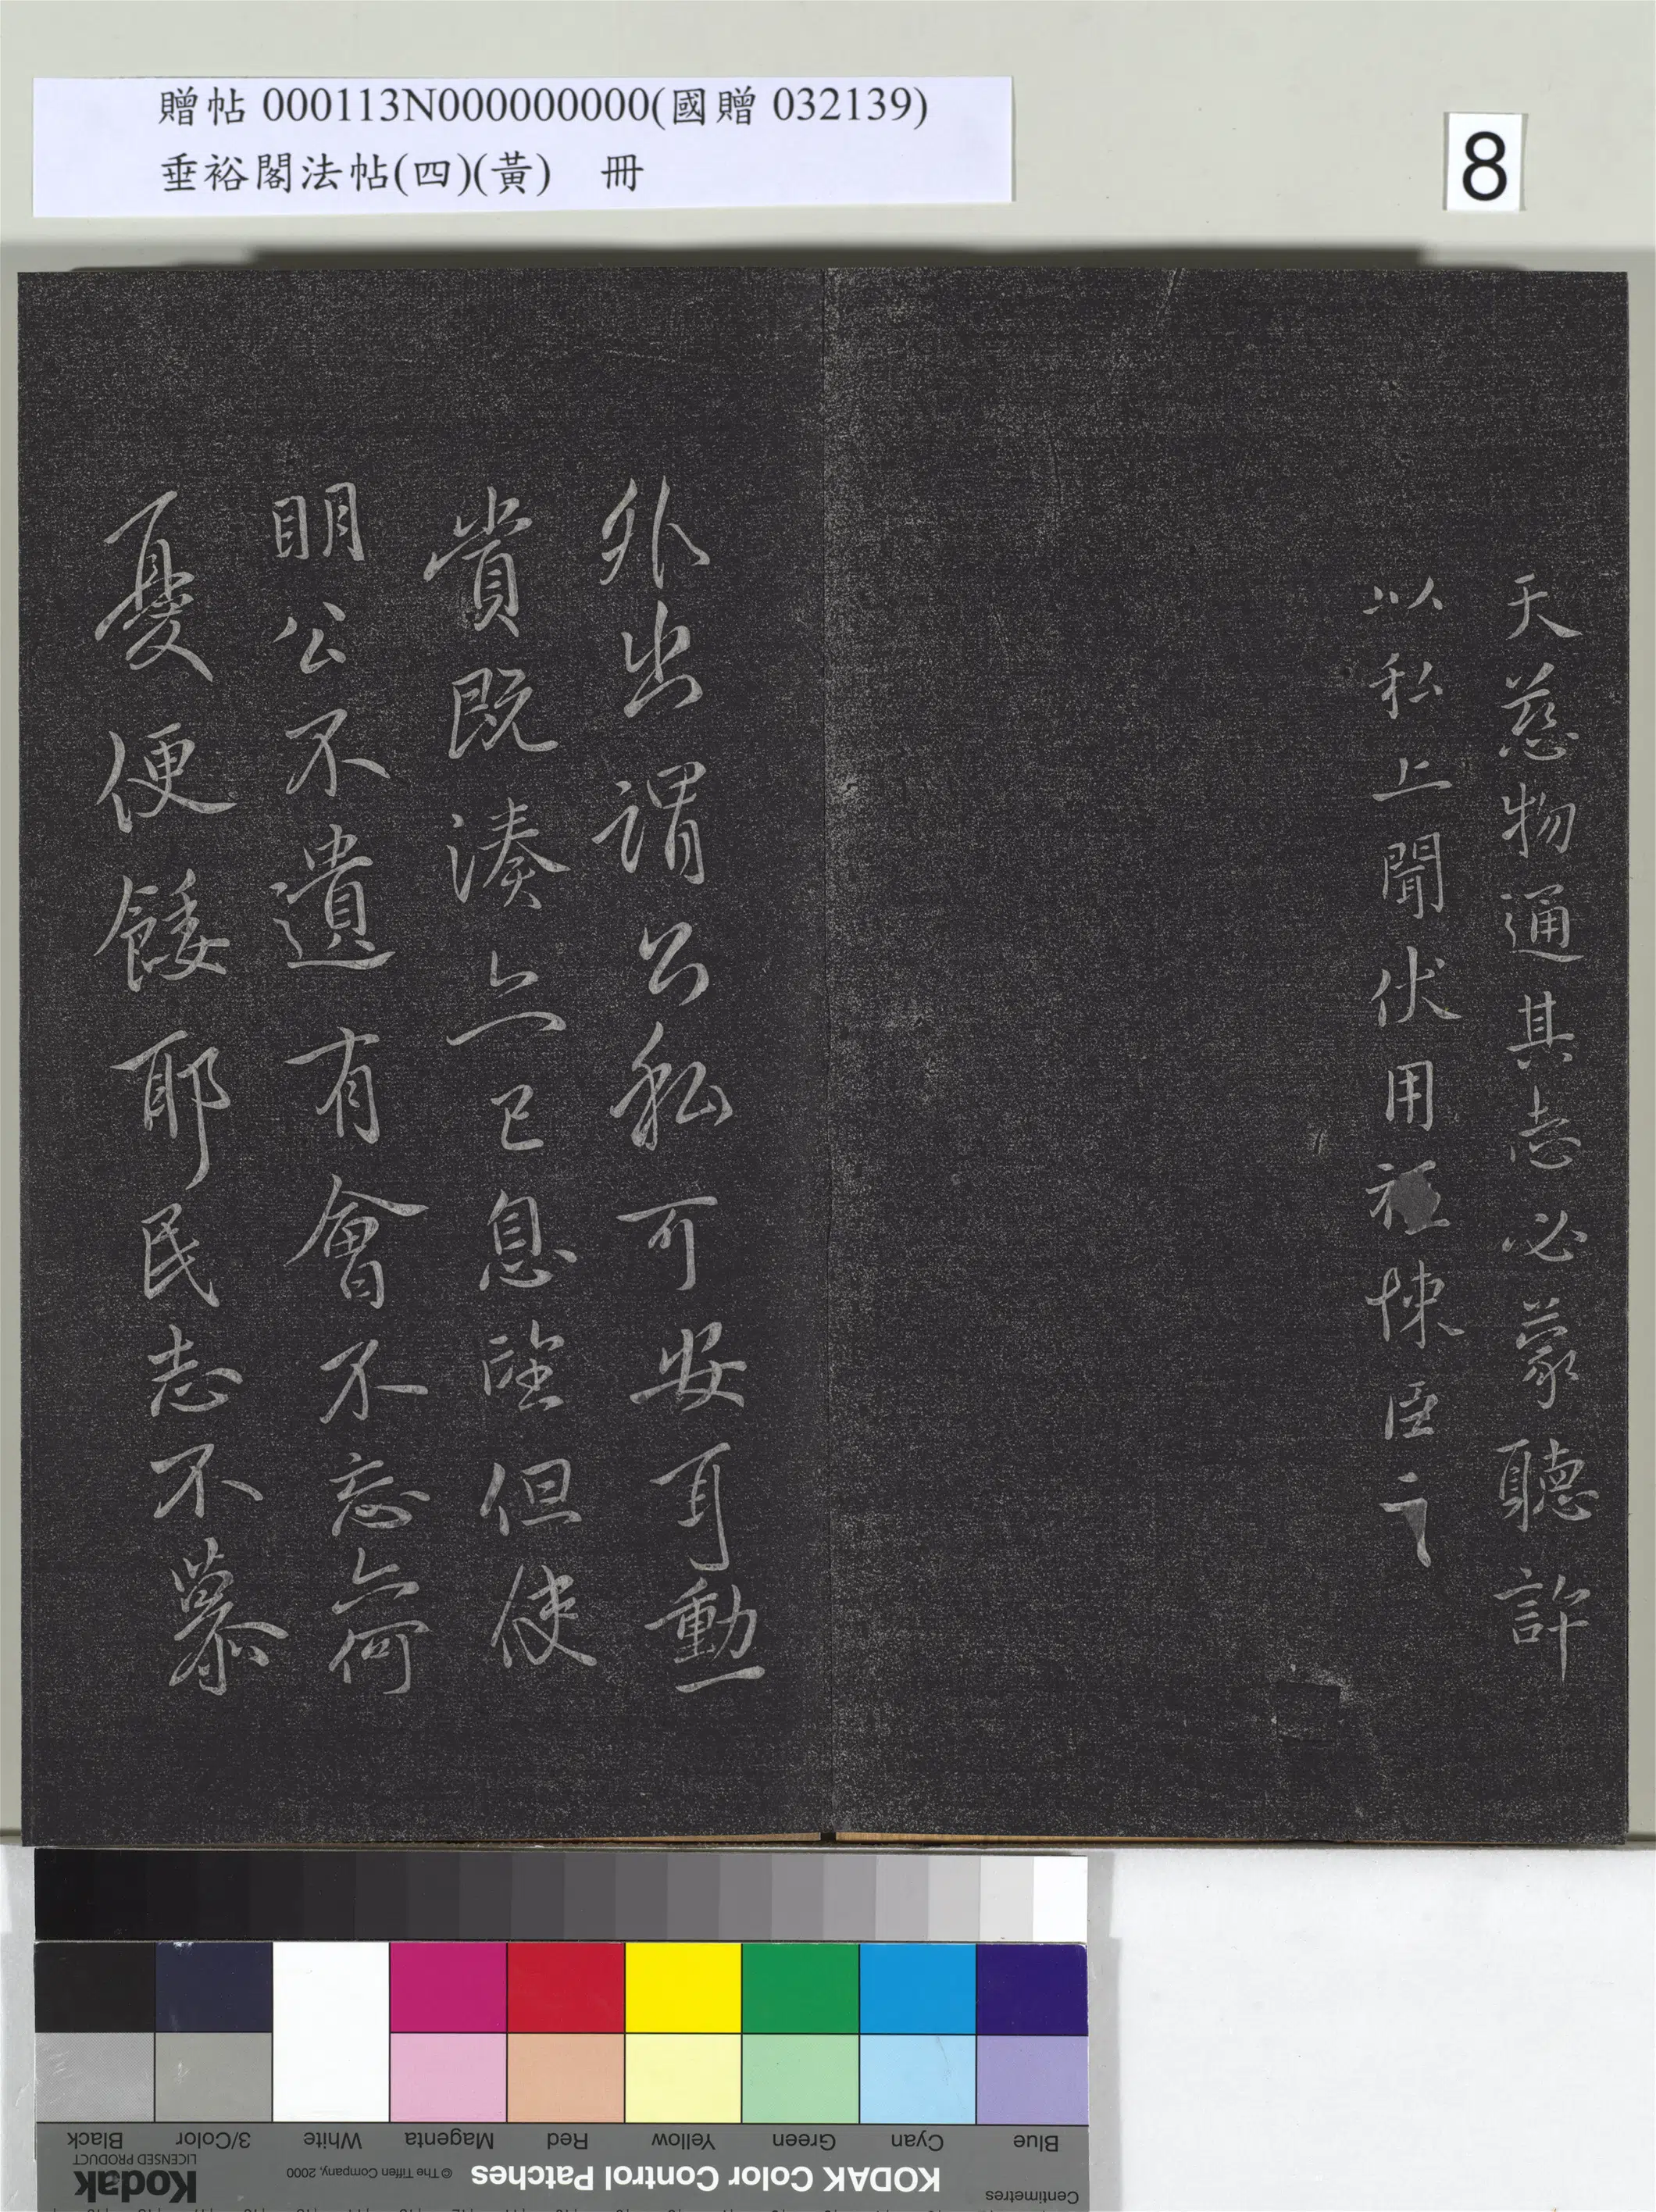 贈帖 000113N000000000(國贈 032139)
垂裕閣法帖(四)(黃) 冊
8
天慈物通其志必蒙聽許
以私上聞伏用 悚臣
外出謂公私可安耳動一
賞既湊亦已息望但使
明公不遺有會不忘亦何
憂便餧耶民志不慕
Blue Cyan Green Yellow Red Magenta White 3/Color Black
Centimetres
KODAK Color Control Patches
© The Tiffen Company, 2000
Kodak
LICENSED PRODUCT